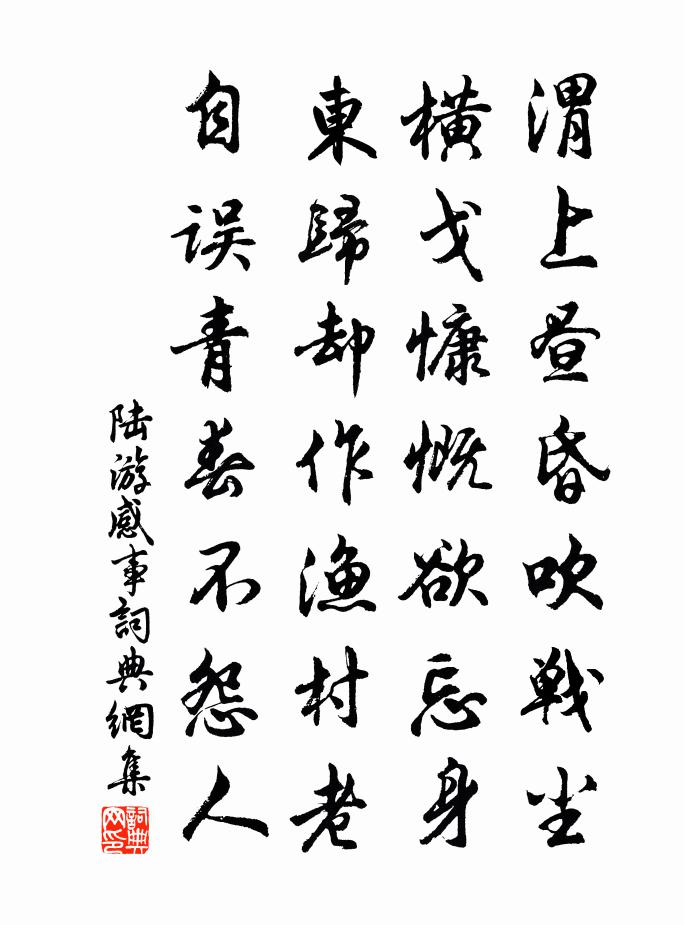 渭上昼昏吹戦尘
横戈慷慨欲忘身
東歸却作漁村老
自误青春不怨人
陆游感事詞典網集
詞典网印